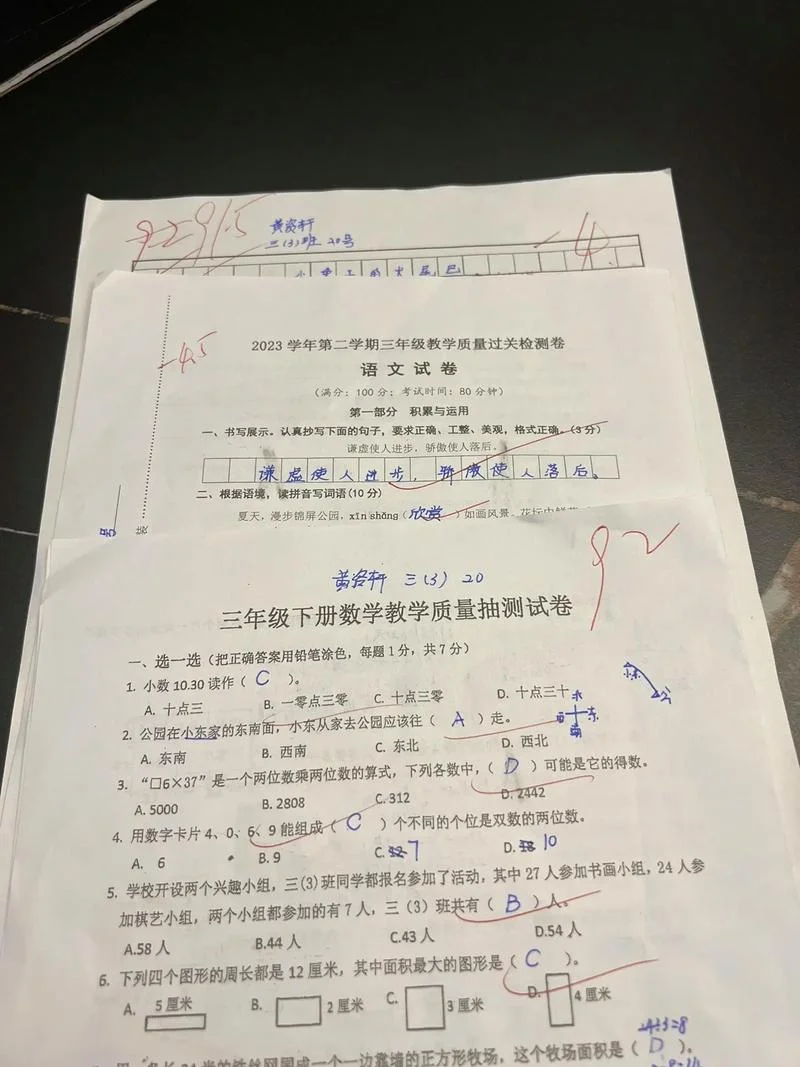 92 91.5
黄洛轩
三(3)班 20号
-4
-4.5
2023 学年第二学期三年级教学质量过关检测卷
语 文 试 卷
(满分：100 分；考试时间：80 分钟)
第一部分 积累与运用
一、书写展示。认真抄写下面的句子，要求正确、工整、美观，格式正确。(3 分)
谦虚使人进步，骄傲使人落后。
谦虚使人进步，骄傲使人落后。
二、根据语境，读拼音写词语(10 分)
夏天，漫步锦屏公园，xīn shǎng（欣赏）如画风景。花坛中鲜花
号
装
92
黄洛轩 三(3) 20
三年级下册数学教学质量抽测试卷
一、选一选（把正确答案用铅笔涂色，每题 1 分，共 7 分）
1. 小数 10.30 读作（ C ）。
A. 十点三 B. 一零点三零 C. 十点三零 D. 十点三十
2. 公园在小东家的东南面，小东从家去公园应该往（ A ）走。
A. 东南 B. 西南 C. 东北 D. 西北
东
南
3. “□6×37”是一个两位数乘两位数的算式，下列各数中，（ D ）可能是它的得数。
A. 5000 B. 2808 C. 312 D. 2442
4. 用数字卡片 4、0、6、9 能组成（ C ）个不同的个位是双数的两位数。
A. 6 B. 9 C. 7 D. 10
5. 学校开设两个兴趣小组，三(3)班同学都报名参加了活动，其中 27 人参加书画小组，24 人参
加棋艺小组，两个小组都参加的有 7 人，三（3）班共有（ B ）人。
A.58 人 B.44 人 C.43 人 D.54 人
6. 下列四个图形的周长都是 12 厘米，其中面积最大的图形是（ C ）。
A. 5 厘米 B. 2 厘米 C. 3 厘米 D. 4 厘米
24÷3=8
长 24 米的铁丝网围成一个一边靠墙的正方形牧场，这个牧场面积是（ D ）。